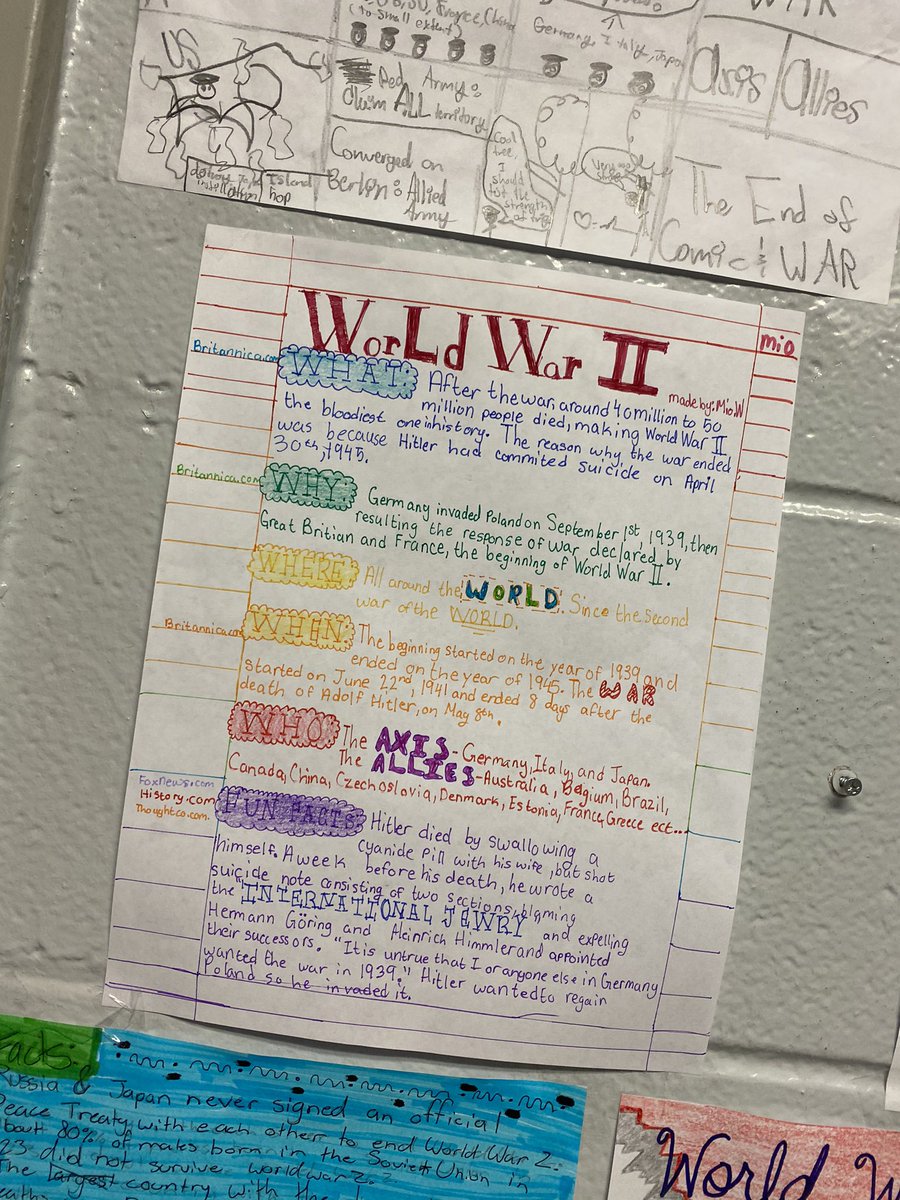 (to small extent)
Germany, Italy, Japan
WAR
US
Red Army:
Claim ALL territory
Axis
Allies
Converged on
Berlin: Allied
Army
Island
hop
Cool
tree,
I
should
The End of
Comic & WAR
World War II
mio
made by: Mio.W
Britannica.com
WHAT: After the war, around 40 million to 50
million people died, making World War II
the bloodiest one in history. The reason why the war ended
was because Hitler had commited suicide on April
30th, 1945.
Britannica.com
WHY Germany invaded Poland on September 1st, 1939, then
resulting the response of war declared by
Great Britian and France, the beginning of World War II.
WHERE All around the WORLD. Since the second
war of the WORLD.
Britannica.com
WHEN The beginning started on the year of 1939 and
ended on the year of 1945. The WAR
started on June 22nd, 1941 and ended 8 days after the
death of Adolf Hitler, on May 8th.
WHO The AXIS-Germany, Italy, and Japan.
The ALLIES-Australia, Belgium, Brazil,
Canada, China, Czechoslovia, Denmark, Estonia, France, Greece ect...
FoxNews.com
History.com
Thoughtco.com
FUN FACTS: Hitler died by swallowing a
cyanide pill with his wife, but shot
himself. A week before his death, he wrote a
suicide note consisting of two sections, blaming
the "INTERNATIONAL JEWRY and expelling
Hermann Göring and Heinrich Himmler and appointed
their successors. "It is untrue that I or anyone else in Germany
wanted the war in 1939." Hitler wanted to regain
Poland so he invaded it.
Facts:
Russia & Japan never signed an official
Peace Treaty with each other to end World War 2.
about 80% of males born in the Soviet Union in
23 did not survive world war 2.
The largest country with the
World W